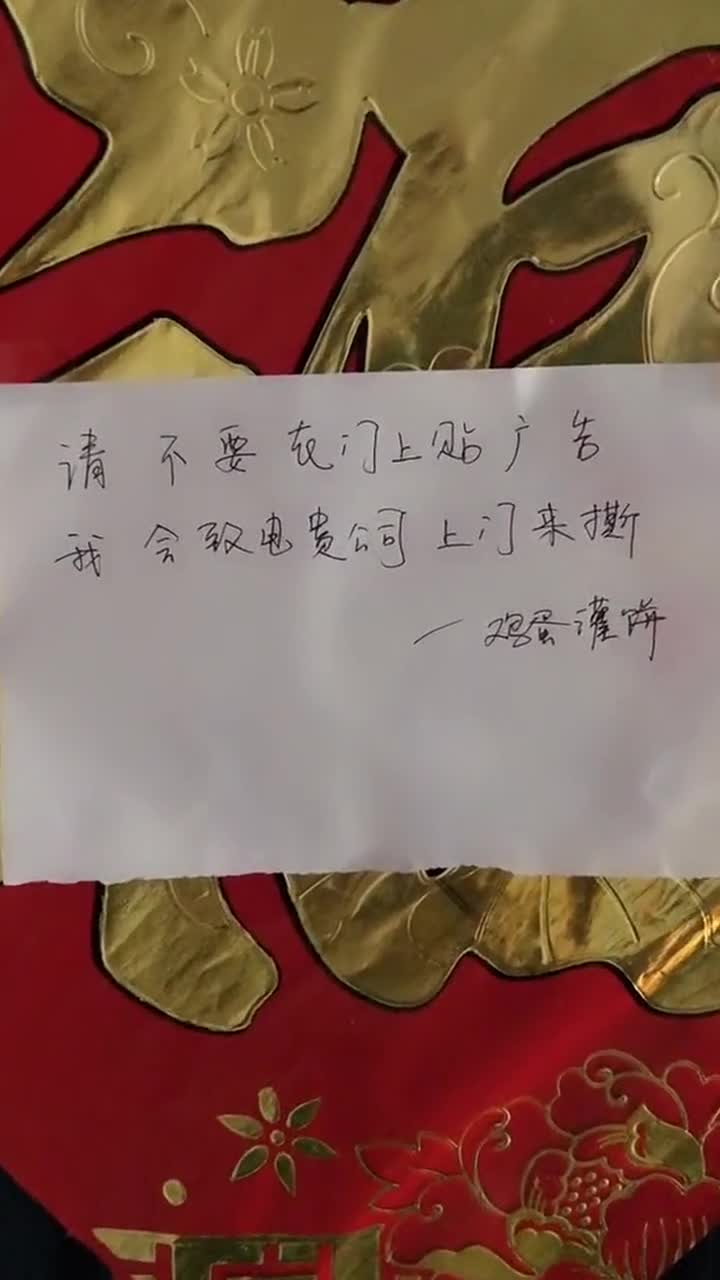 请不要在门上贴广告
我会致电贵公司上门来撕
一鸡蛋灌饼